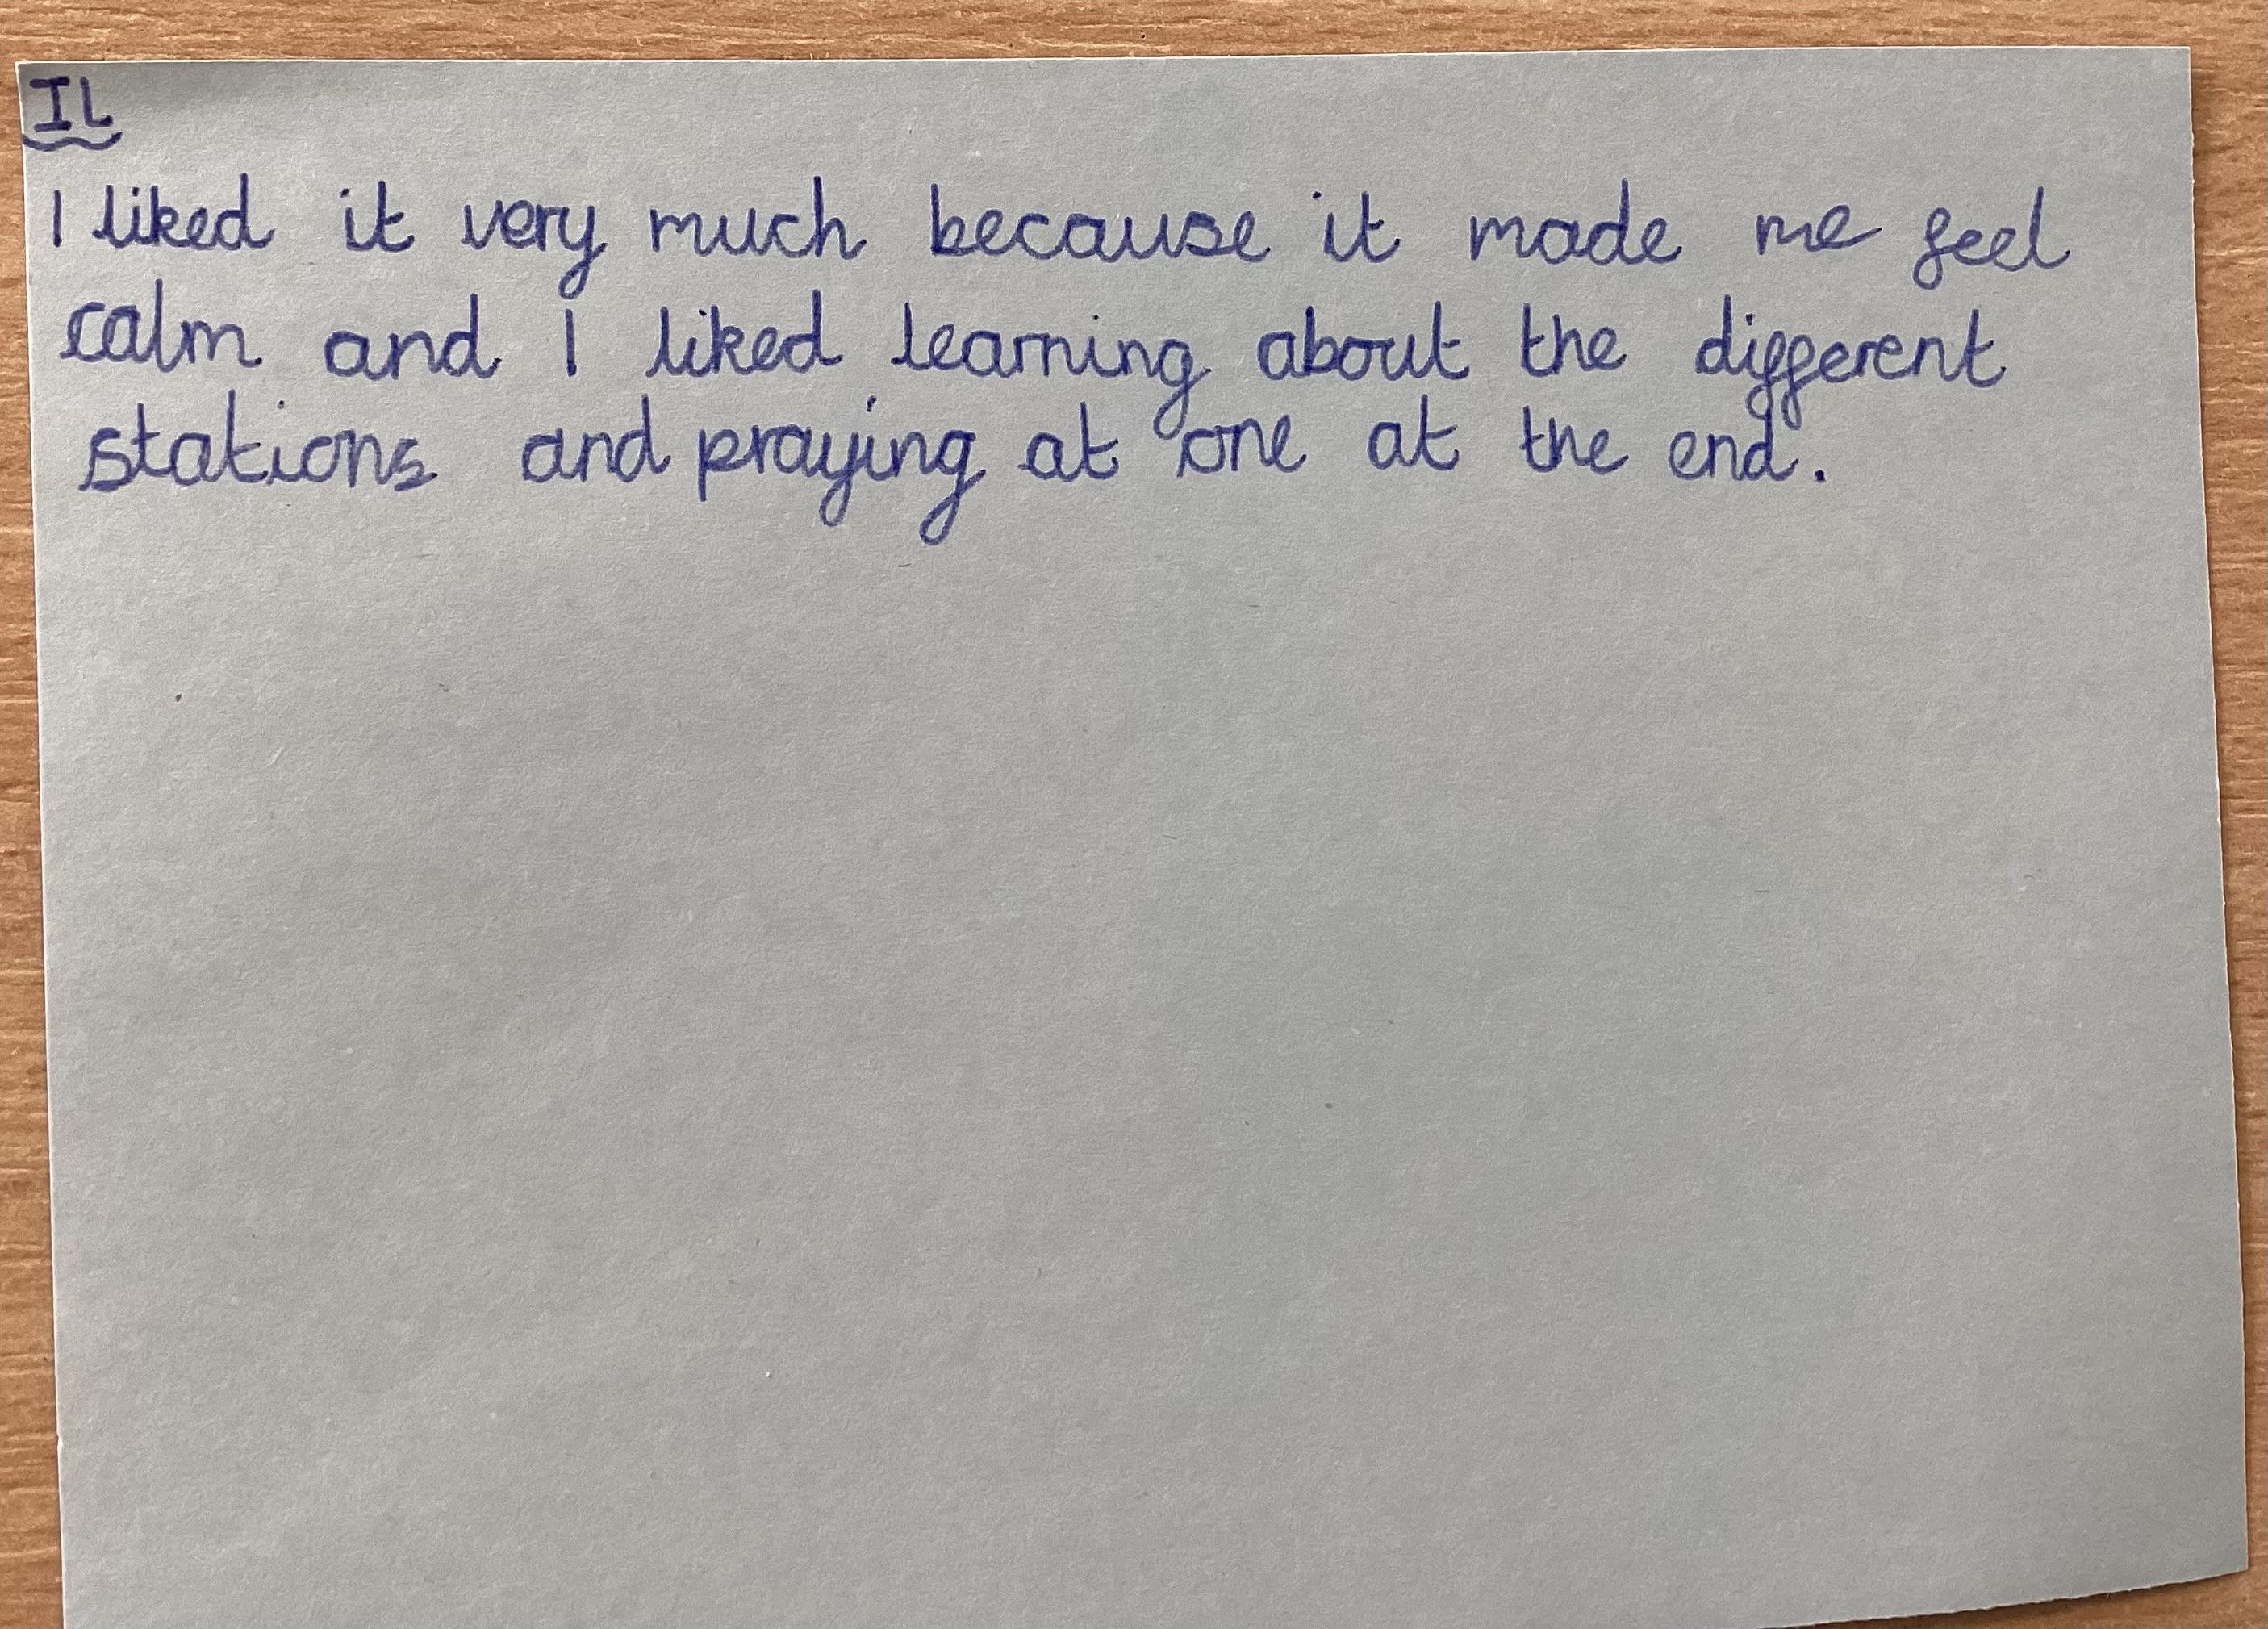 IL
I liked it very much because it made me feel
calm and I liked learning about the different
stations and praying at one at the end.